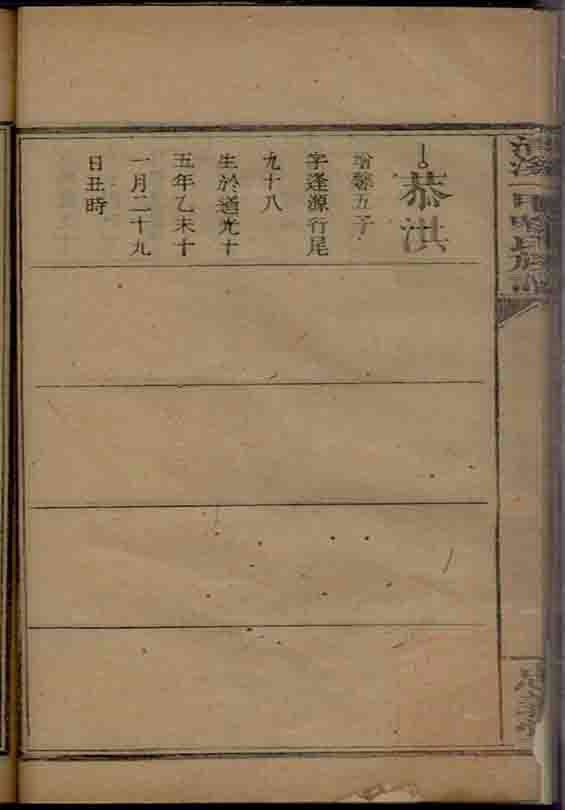 恭洪
繪馨五子
字逢源行尾
九十八
生於道光十
五年乙未十
一月二十九
日丑時